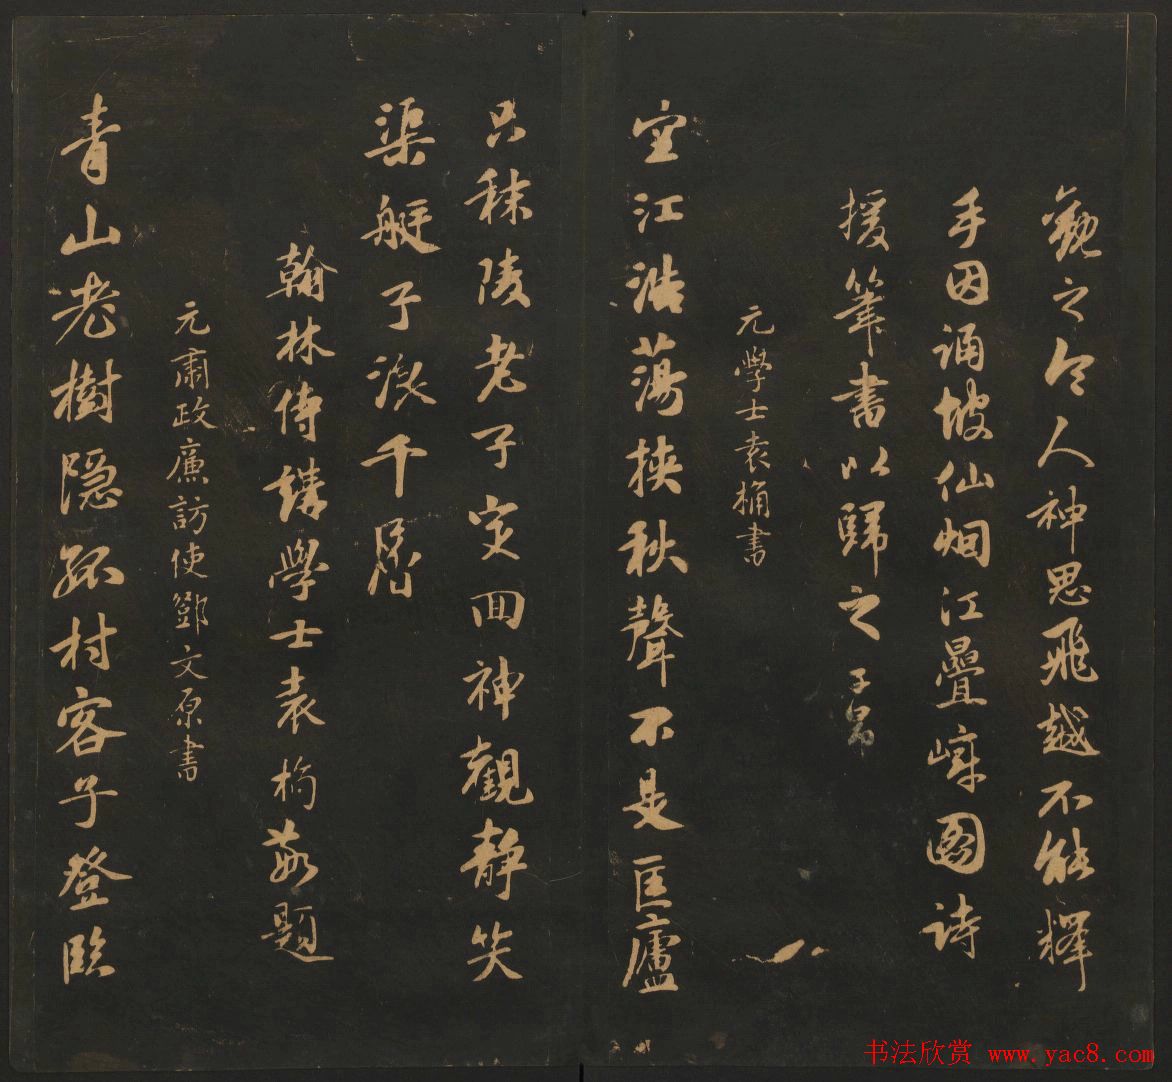 觀之令人神思飛越不能釋
手因誦坡仙烟江疊嶂圖詩
援筆書以歸之子昂
元學士袁桷書
空江浩蕩挾秋聲不是匡廬
只秣陵老子定回神觀静笑
渠艇子浪千層
翰林侍講學士袁桷敬題
元肅政廉訪使鄧文原書
青山老樹隱孤村客子登臨
书法欣赏 www.yac8.com